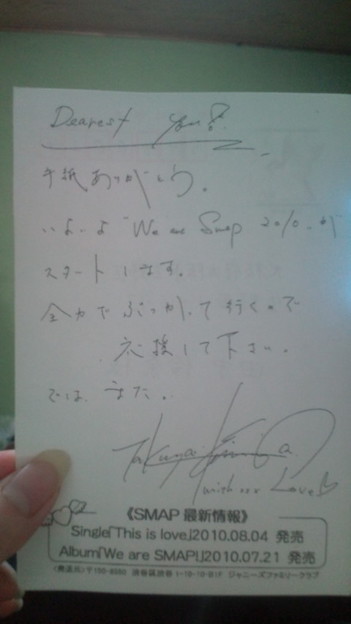 Dearest you!
手紙ありがとう。
いよいよ "We are Smap 2010" が
スタートします。
全力でぶつかって行くので
応援して下さい。
では、また。
Takuya Kimura
with xxx Love
《SMAP 最新情報》
Single「This is love」2010.08.04 発売
Album「We are SMAP!」2010.07.21 発売
ジャニーズファミリークラブ